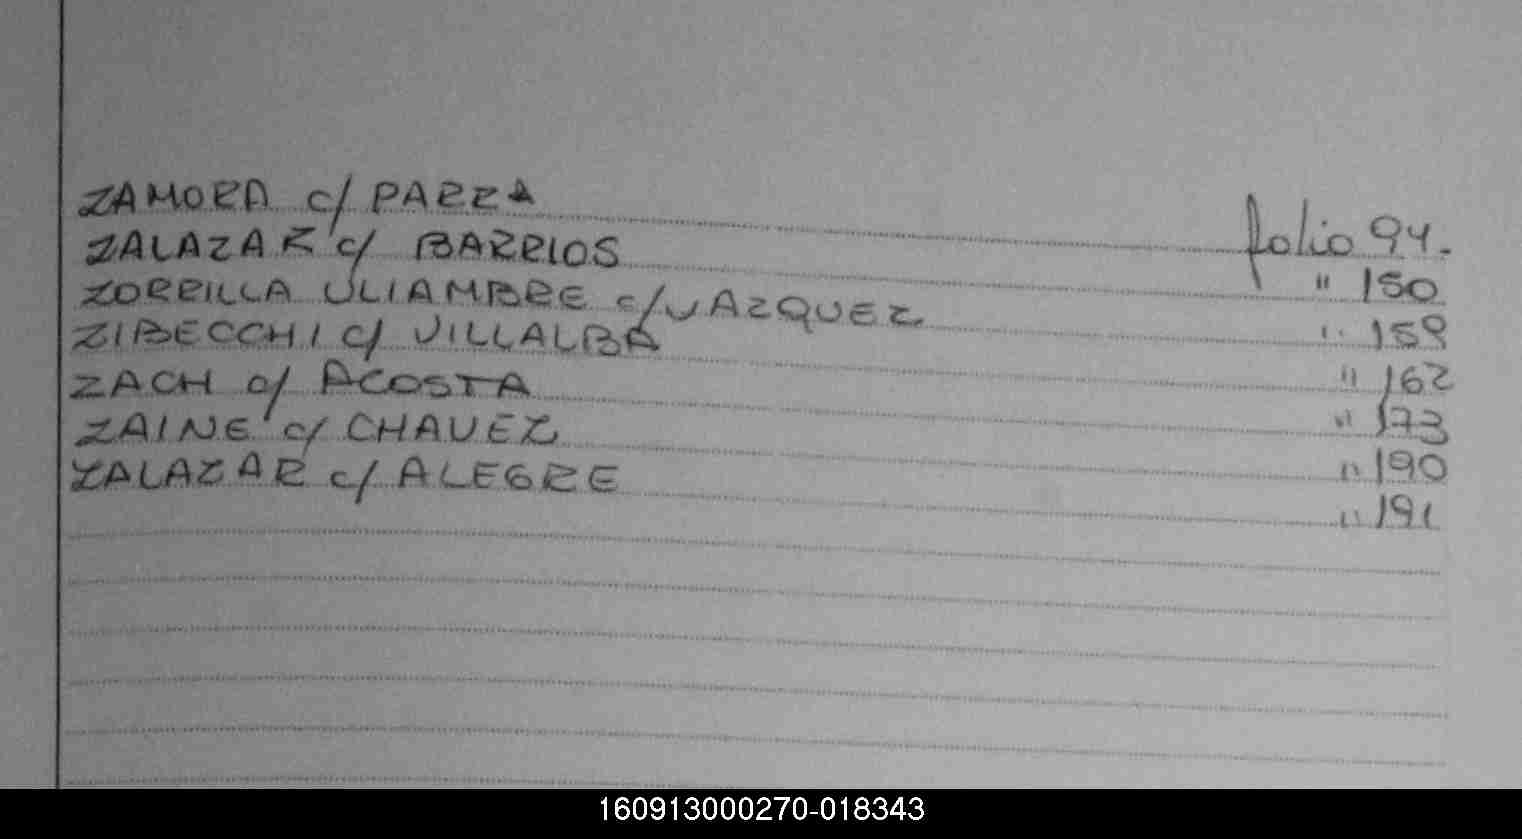 ZAMORA c/ PARRA folio 94.
ZALAZAR c/ BARRIOS " 150
ZORRILLA ULIAMBRE c/ VAZQUEZ " 159
ZIBECCHI c/ VILLALBA " 162
ZACH c/ ACOSTA " 173
ZAINE c/ CHAVEZ " 190
ZALAZAR c/ ALEGRE " 191
160913000270-018343